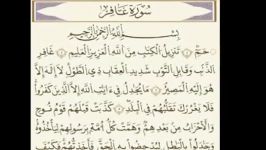 سورة غافر
بسم الله الرحمن الرحيم
حم تنزيل الكتب من الله العزيز العليم غافر
الذنب وقابل التوب شديد العقاب ذي الطول لا إله إلا
هو إليه المصير ما يجدل في ءايت الله إلا الذين كفروا
فلا يغررك تقلبهم في البلد كذبت قبلهم قوم نوح
والأحزاب من بعدهم وهمت كل أمة برسولهم ليأخذوه
وجدلوا بالبطل ليدحضوا به الحق فأخذتهم فكيف